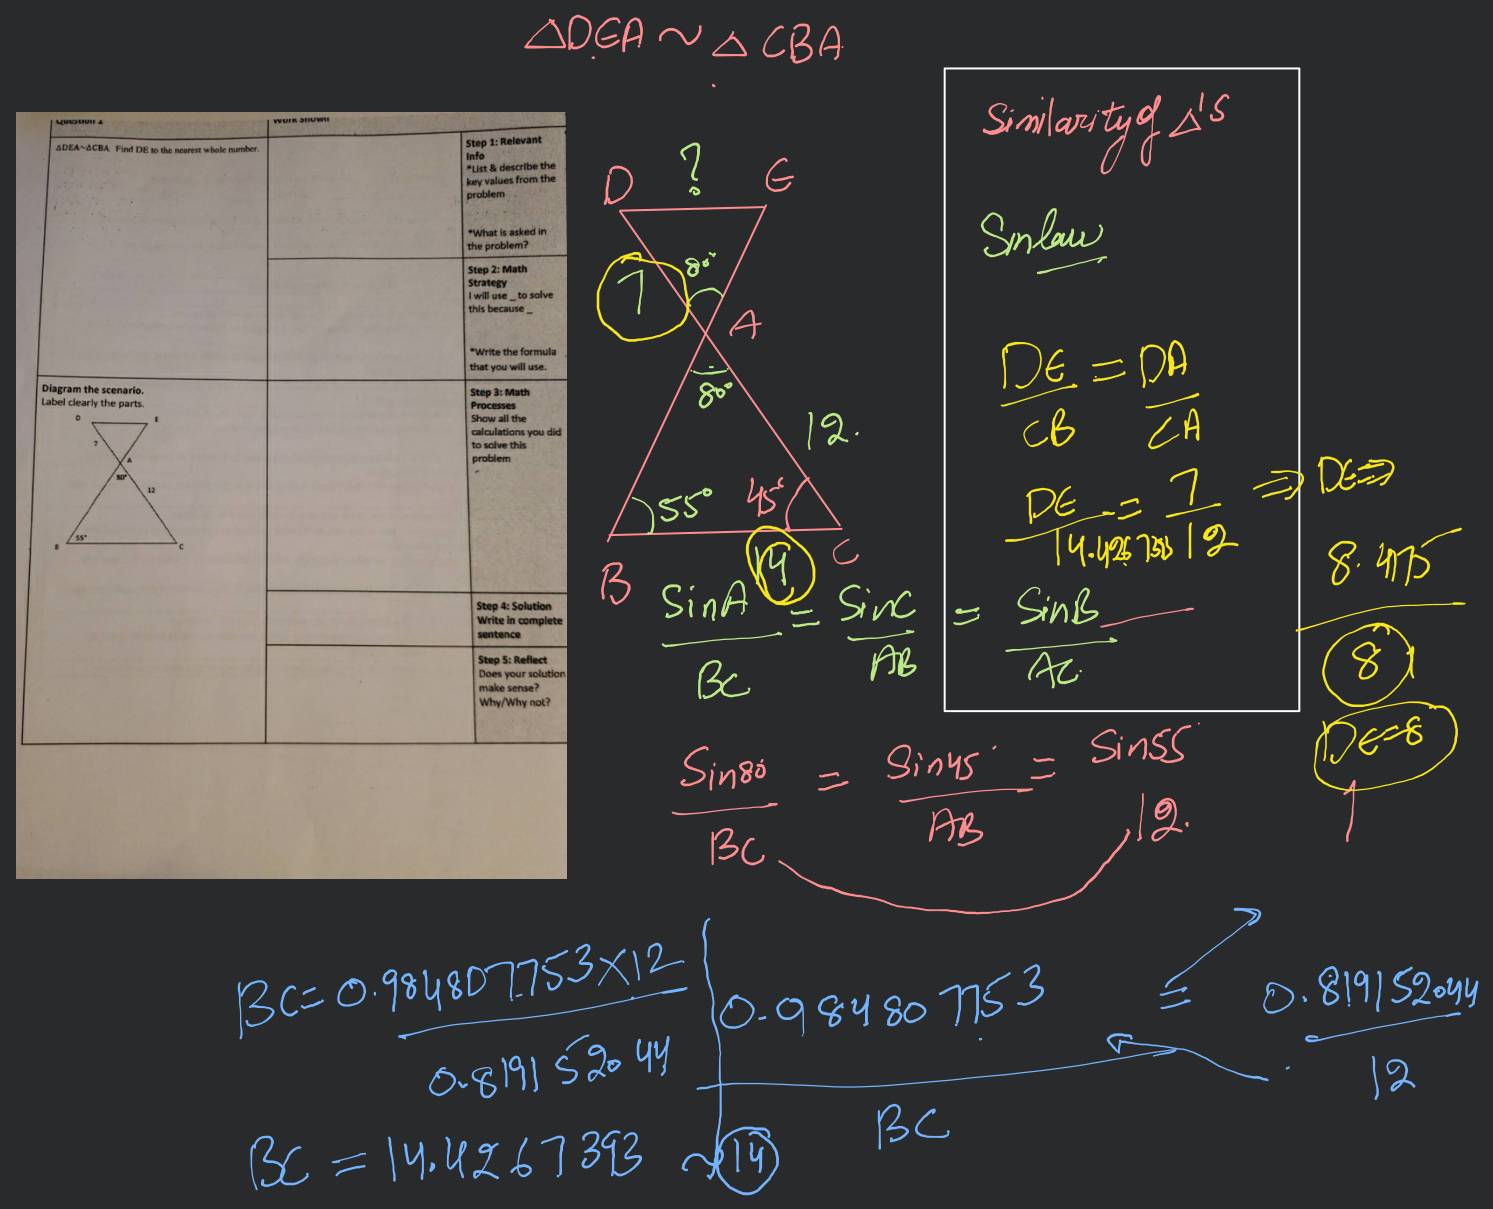 △DEA ~ △CBA
Question 1
Work Shown
△DEA~△CBA. Find DE to the nearest whole number.
Step 1: Relevant
Info
*List & describe the
key values from the
problem
*What is asked in
the problem?
Step 2: Math
Strategy
I will use _ to solve
this because _
*Write the formula
that you will use.
Diagram the scenario.
Label clearly the parts.
D
E
7
A
80°
12
55°
B
C
Step 3: Math
Processes
Show all the
calculations you did
to solve this
problem
Step 4: Solution
Write in complete
sentence
Step 5: Reflect
Does your solution
make sense?
Why/Why not?
?
D
E
7
80°
A
80°
12.
55°
45°
B
14
C
Similarity of △'s
Sin law
DE/CB = DA/CA
DE/14.426738 = 7/12 ⇒ DE ⇒
8.415
8
DE=8
SinA/BC = SinC/AB = SinB/AC
Sin80/BC = Sin45/AB = Sin55/12.
BC = 0.984807753×12
0.819152044
0.984807753/BC = 0.819152044/12
BC = 14.4267393 ~ 14